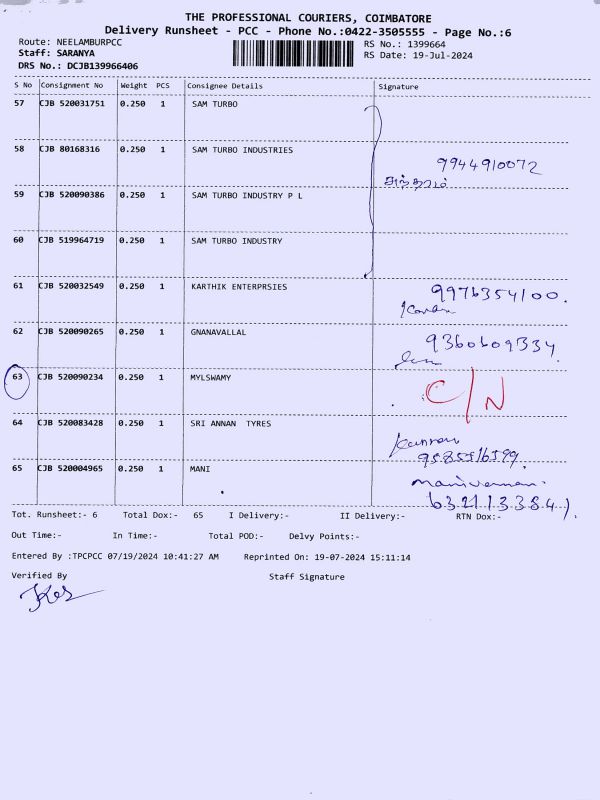 THE PROFESSIONAL COURIERS, COIMBATORE
Delivery Runsheet - PCC - Phone No.:0422-3505555 - Page No.:6
Route: NEELAMBURPCC
RS No.: 1399664
Staff: SARANYA
RS Date: 19-Jul-2024
DRS No.: DCJB139966406
S No Consignment No Weight PCS Consignee Details Signature
57 CJB 520031751 0.250 1 SAM TURBO
58 CJB 80168316 0.250 1 SAM TURBO INDUSTRIES
9944910072
59 CJB 520090386 0.250 1 SAM TURBO INDUSTRY P L
60 CJB 519964719 0.250 1 SAM TURBO INDUSTRY
61 CJB 520032549 0.250 1 KARTHIK ENTERPRSIES 9976354100.
62 CJB 520090265 0.250 1 GNANAVALLAL 9360609334
63 CJB 520090234 0.250 1 MYLSWAMY C/N
64 CJB 520083428 0.250 1 SRI ANNAN TYRES
Kannan
65 CJB 520004965 0.250 1 MANI
Tot. Runsheet:- 6 Total Dox:- 65 I Delivery:- II Delivery:- RTN Dox:-
Out Time:- In Time:- Total POD:- Delvy Points:-
Entered By :TPCPCC 07/19/2024 10:41:27 AM Reprinted On: 19-07-2024 15:11:14
Verified By Staff Signature